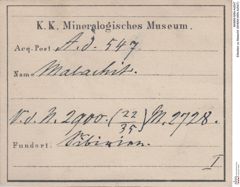 K. K. Mineralogisches Museum.
Acq.-Post A.d. 547
Name Malachit.
V.d.N. 2900. (22/35) M. 2728.
Fundort: Sibirien.
I